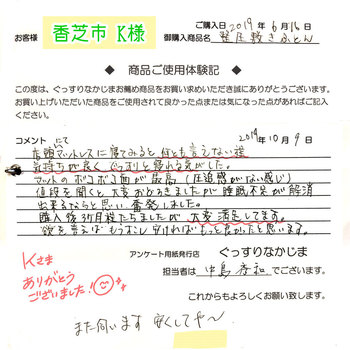 お客様 香芝市 K様
ご購入日 2019年6月16日
御購入商品名 整圧敷きふとん
◆ 商品ご使用体験記 ◆
この度は、ぐっすりなかじまお薦め商品をお買い求めいただき誠にありがとうございます。
お買い上げいただいた商品をご使用されて良かった点または気になった点があればご記入
ください。
コメント にて 2019年10月9日
店頭マットレスに寝てみると何とも言えない程
気持ちが良く ぐっすりと眠れる気がした。
マットのボコボコ面が最高(圧迫感がない感じ)
値段を聞くと大変おどろきましたが睡眠不足が解消
出来るならと思い奮発しました。
購入後3ヶ月程たちましたが、大変満足してます。
欲を言えばもう少し安ければもっと良かったと思います。
Kさま
ありがとう
ございました!
アンケート用紙発行店 ぐっすりなかじま
担当者は 中島孝和 でございます。
これからもよろしくお願い致します。
また伺います 安くしてや〜